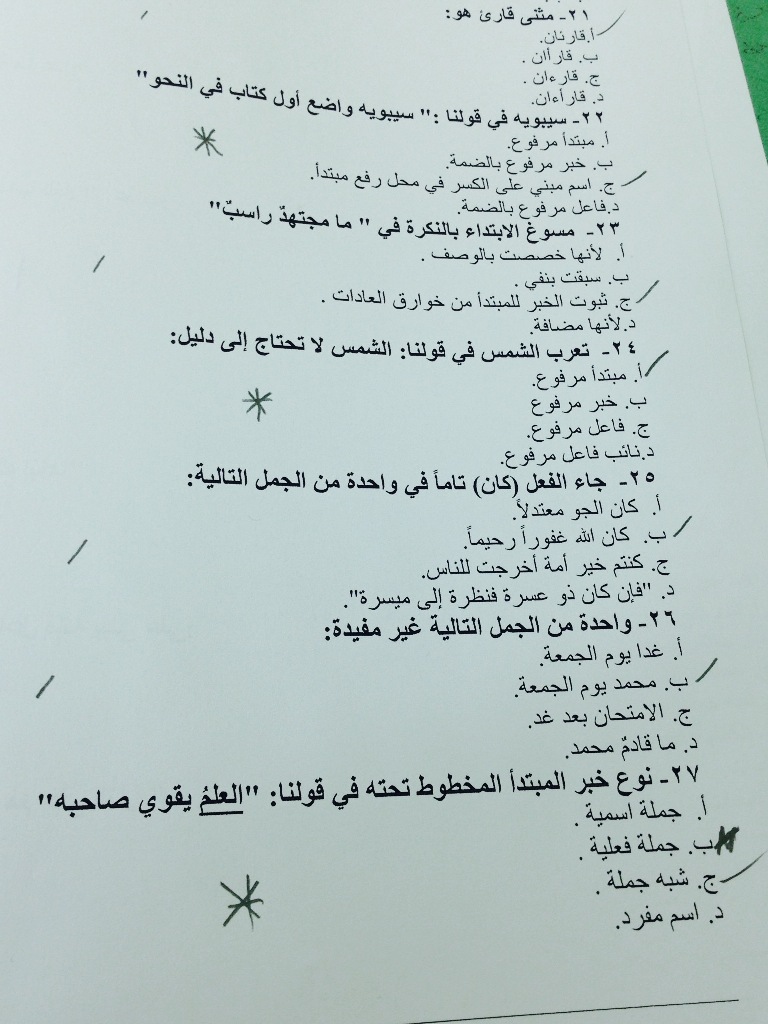 ٢١- مثنى قارئ هو:
أ.قارئان.
ب. قارأان .
ج. قارءان .
د. قارأءان.
٢٢- سيبويه في قولنا :" سيبويه واضع أول كتاب في النحو"
أ. مبتدأ مرفوع.
ب. خبر مرفوع بالضمة.
ج. اسم مبني على الكسر في محل رفع مبتدأ.
د.فاعل مرفوع بالضمة.
٢٣- مسوغ الابتداء بالنكرة في " ما مجتهدٌ راسبٌ"
أ. لأنها خصصت بالوصف .
ب. سبقت بنفي .
ج. ثبوت الخبر للمبتدأ من خوارق العادات .
د.لأنها مضافة.
٢٤- تعرب الشمس في قولنا: الشمس لا تحتاج إلى دليل:
أ. مبتدأ مرفوع.
ب. خبر مرفوع
ج. فاعل مرفوع.
د.نائب فاعل مرفوع.
٢٥- جاء الفعل (كان) تاماً في واحدة من الجمل التالية:
أ. كان الجو معتدلاً.
ب. كان الله غفوراً رحيماً.
ج. كنتم خير أمة أخرجت للناس.
د. "فإن كان ذو عسرة فنظرة إلى ميسرة".
٢٦- واحدة من الجمل التالية غير مفيدة:
أ. غدا يوم الجمعة.
ب. محمد يوم الجمعة.
ج. الامتحان بعد غد.
د. ما قادمٌ محمد.
٢٧- نوع خبر المبتدأ المخطوط تحته في قولنا: "العلمُ يقوي صاحبه"
أ. جملة اسمية .
ب. جملة فعلية .
ج. شبه جملة .
د. اسم مفرد.